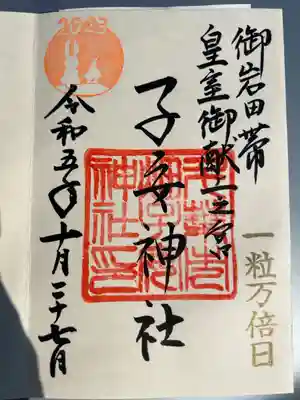 御岩田帯
皇室御献上之宮
一粒万倍日
子安神社
2023
令和五年十月二十七日